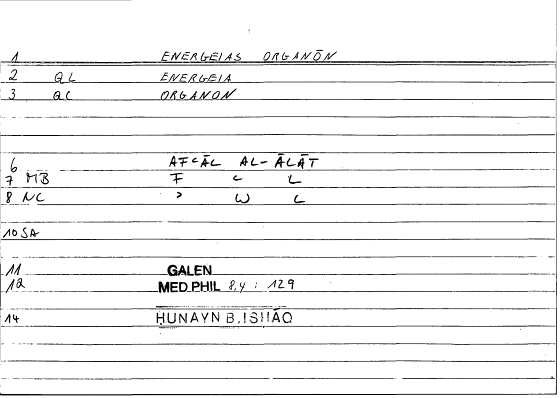 1 ENERGEIAS ORGANŌN
2 QL ENERGEIA
3 QC ORGANON
6 AFʿĀL AL-ĀLĀT
7 MB F ʿ L
8 NC ʾ W L
10 SA
11 GALEN
12 MED.PHIL 8,4 : 129
14 ḤUNAYN B. ISḤĀQ